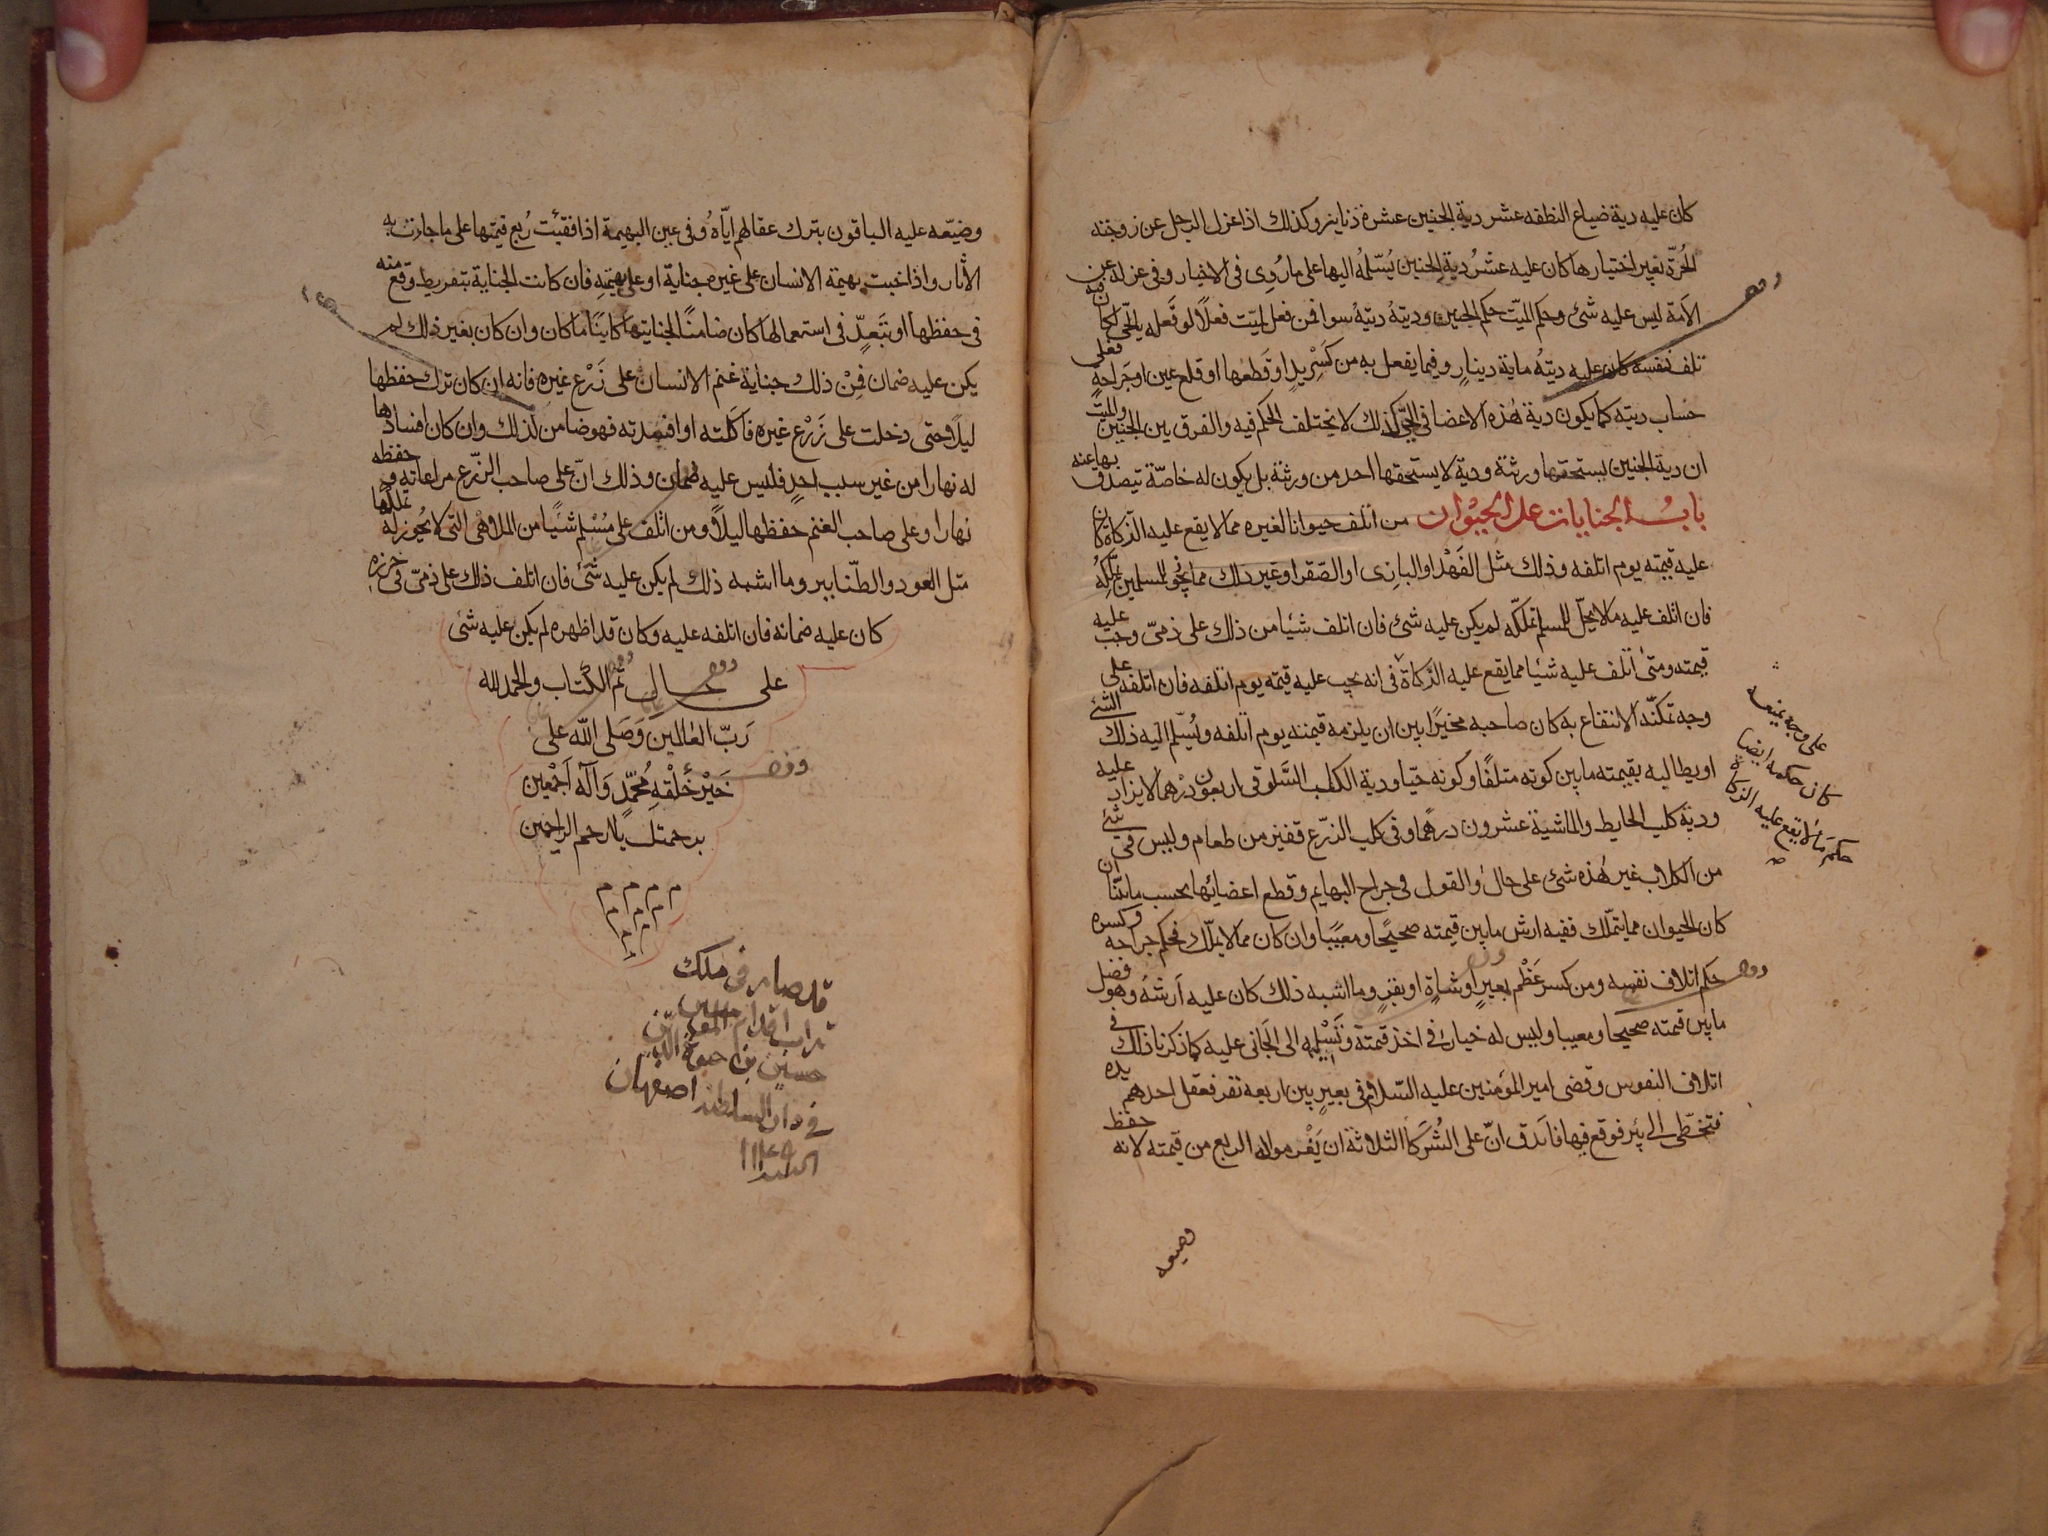 كان عليه دية ضياع النطفه عشر دية الجنين عشرة دنانير وكذلك اذا عزل الرجل عن زوجته
الحُرّة بغير اختيارها كان عليه عشرُ دية الجنين يُسّلمهُ اليها على ما رُوِى فى الاخبار وفى عزله عن
الامة ليس عليه شئ وحكم الميّت حكم الجنين وديتهُ ديتهُ سوا فمن فعل بميّت فعلًا لو فَعله بالحّى لكان فيه
تلف نفسه كان عليه ديتهُ ماية دينارٍ وفيما يفعل به من كَسْرِ يدٍ او قَطعها او قلع عين او جَراحةٍ فعلى
حساب ديته كما يكون دية هٰذه الاعضا فى الحّى كذلك لا يختلف الحكم فيه والفرق بين الجنين والميّت
ان دية الجنين يستحقها ورثته ودية لا يستحقها احد من ورثته بل يكون له خاصّة تيصدق بها عنه
بابُ الجنايات على الحيْوان من اتلف حيوانا لغيره مما لا يقع عليه الذّكاة كان
عليه قيمته يوم اتلفه وذلك مثل الفَهْد او البازِى او الصّقر او غير ذلك مما يجُوز للمسلمين تملّكهُ
فان اتلف عليه ما لا يحّل للمسلم تملكّه لم يكن عليه شئ فان اتلف شيئا من ذلك على ذمىّ وجب عليه
قيمته ومتىٰ اتلف عليه شيئا مما يقع عليه الزّكاة فى انه يجب عليه قيمته يوم اتلفه فان اتلفه على
وجه تمكنّه الانتفاع به كان صاحبه مخيرًا بين ان يلزمه قيمته يوم اتلفه ويُسّلم اليه ذلك الشئ
او يطالبه بقيمته ما بين كوته متلفًا وكونه حيّا ودية الكلب السَّلوقى اربعون دِرْهما لا يزاد عليه
ودية كلب الحايط والماشية عشرون درهما وفى كلب الزرّع قفيز من طعام وليس فى شئ
من الكلاب غير هٰذه شئ على حال والقول فى جراح البهايم وقطع اعضائها بحسب ما بّينّا ان
كان الحيوان مما يتملّك ففيه ارش ما بين قيمته صحيحًا ومعيبًا وان كان مما لا يملّك فحكم جراحه وكسره
حكم اتلاف نفسه ومن كسر عَظْم بعيرٍ او شاةٍ او بقرٍ وما اشبه ذلك كان عليه اَرشهُ وهو فضل
ما بين قيمته صحيحا ومعيبا وليس له خيار فى اخذ قمته وتَسْليمه الى الجَانى عليه كما ذكرنا ذلك فى
اتلاف النفوس وقضى امير المؤمنين عليه السّلام فى بعيرٍ بين اربعه نفر فعقل احدهم يده
فتخطّى الى بِئر فوقع فيها فاندق انّ على الشُرَكا الثلاثة ان يَغْرموا له الربع من قيمته لانه حفظ
على وجه يمنع
كان حكمه ايضا
حكم ما لا يقع عليه الزكاة
وضيعه
وضيّعه عليه الباقون بترك عقالهم ايّاهُ وفى عين البهيمة اذا فقئت رُبع قيمتها على ما جاءت به
الاثار واذا خبت بهيمة الانسان على غيره جناية او على بهيمَتِه فان كانت الجناية بتفريط وقع منه
فى حفظها او تَبَعدٍّ فى استعمالها كان ضامنًا لجنايتها كاينًا ما كان وان كان بغير ذلك لم
يكن عليه ضمان فَمِنْ ذلك جناية غنم الانسان على زَرْع غيرهِ فانه ان كان ترك حفظها
ليلًا حتى دخلت على زَرْع غيره فاكلته او افسدته فهو ضامن لذلك وان كان افسادها
له نهارا من غير سبب احدٍ فليس عليه ضمان وذلك انّ على صاحب الزّرع مراعاته وحفظه
نهارا وعلى صاحب الغنم حفظها ليلًا ومن اتلف على مُسْلم شئيًا من الملاهى التى لا يجُوز له تملكها
مثل العود والطّنابير وما اشبه ذلك لم يكن عليه شئَ فان اتلف ذلك على ذمىّ فى حرزه
كان عليه ضمانه فان اتلفه عليه وكان قد اظهره لم يكن عليه شئ
على حال تم الكتاب والحمد لله
رَبّ العالمين وَصَلى الله على
خَيْر خَلْقهِ مُحَمّدٍ وَآله اَجْمعين
برحمتك يا ارحم الراحمين
م م م م
م م م
م م
م
قد صار فى ملك
تراب اقدام المؤمنين
حسين بن
فى دار السلطنه اصفهان